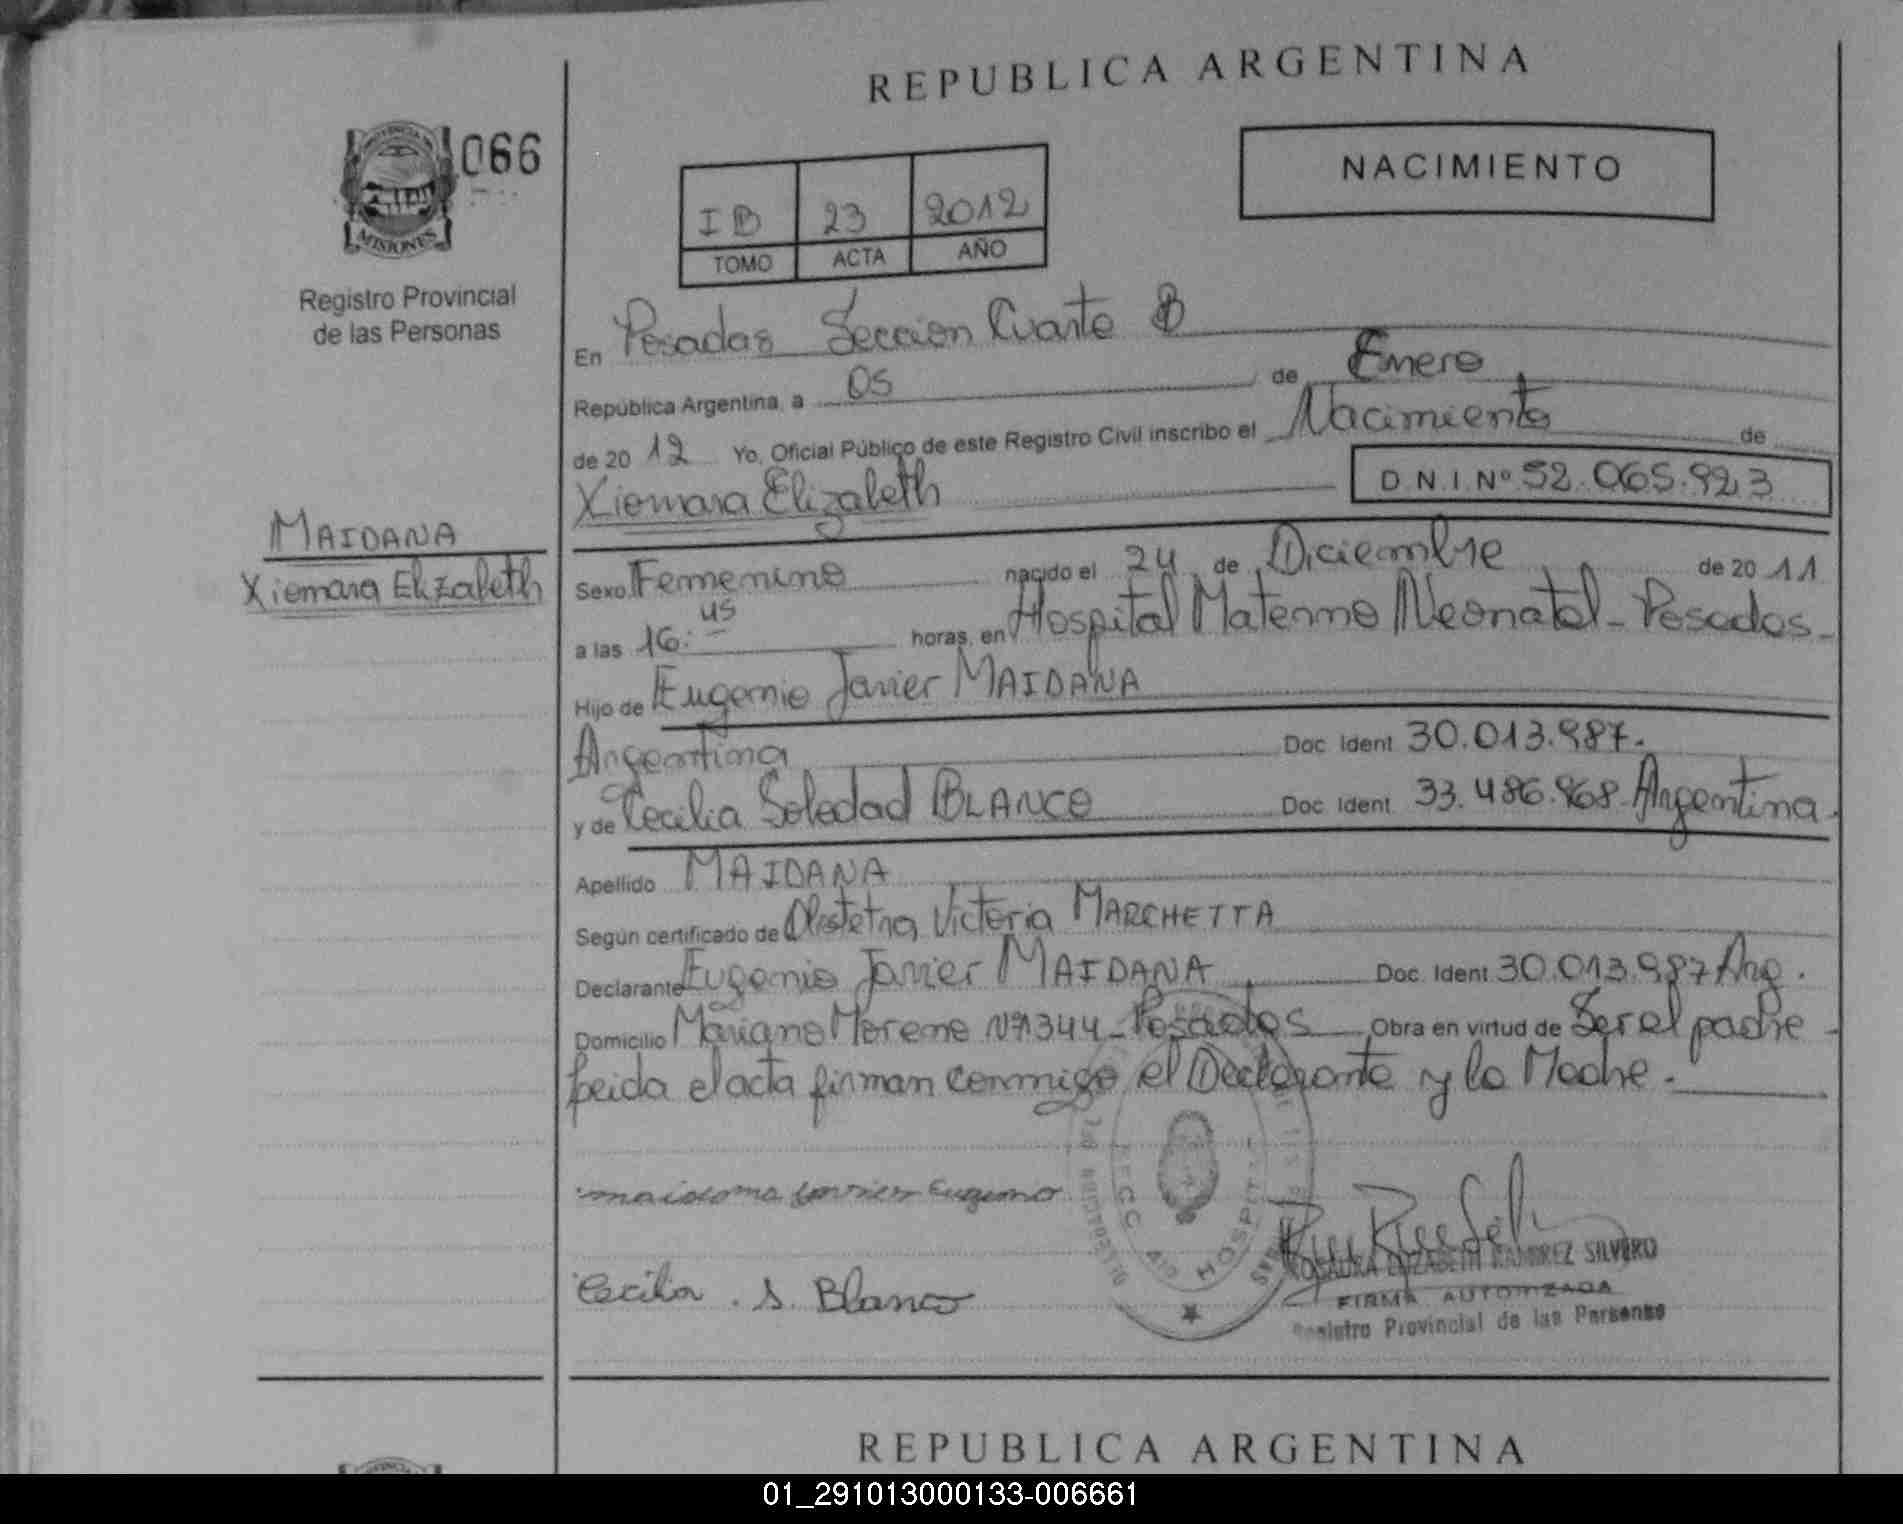 REPUBLICA ARGENTINA
PROVINCIA
MISIONES
066
NACIMIENTO
I B 23 2012
TOMO ACTA AÑO
Registro Provincial
de las Personas
En Posadas Seccion Cuarta B
República Argentina, a 05 de Enero
de 20 12 Yo, Oficial Público de este Registro Civil inscribo el Nacimiento de
Xiomara Elizabeth D.N.I Nº 52.065.923
MAIDANA
Xiomara Elizabeth
Sexo Femenino nacido el 24 de Diciembre de 20 11
a las 16:45 horas, en Hospital Materno Neonatal - Posadas -
Hijo de Eugenio Javier MAIDANA
Argentina Doc. Ident 30.013.987.
y de Cecilia Soledad BLANCO Doc. Ident. 33.486.968 Argentina.
Apellido MAIDANA
Según certificado de Obstetra Victoria MARCHETTA
Declarante Eugenio Javier MAIDANA Doc. Ident. 30.013.987 Arg.
Domicilio Mariano Moreno Nº1344 - Posadas Obra en virtud de Ser el padre -
Leida el acta firman conmigo el Declarante y la Madre.
maidana Javier Eugenio
Cecilia . S. Blanco
HOSPITAL
ROSAURA ELIZABETH RAMIREZ SILVERO
FIRMA AUTORIZADA
Registro Provincial de las Personas
REPUBLICA ARGENTINA
01_291013000133-006661